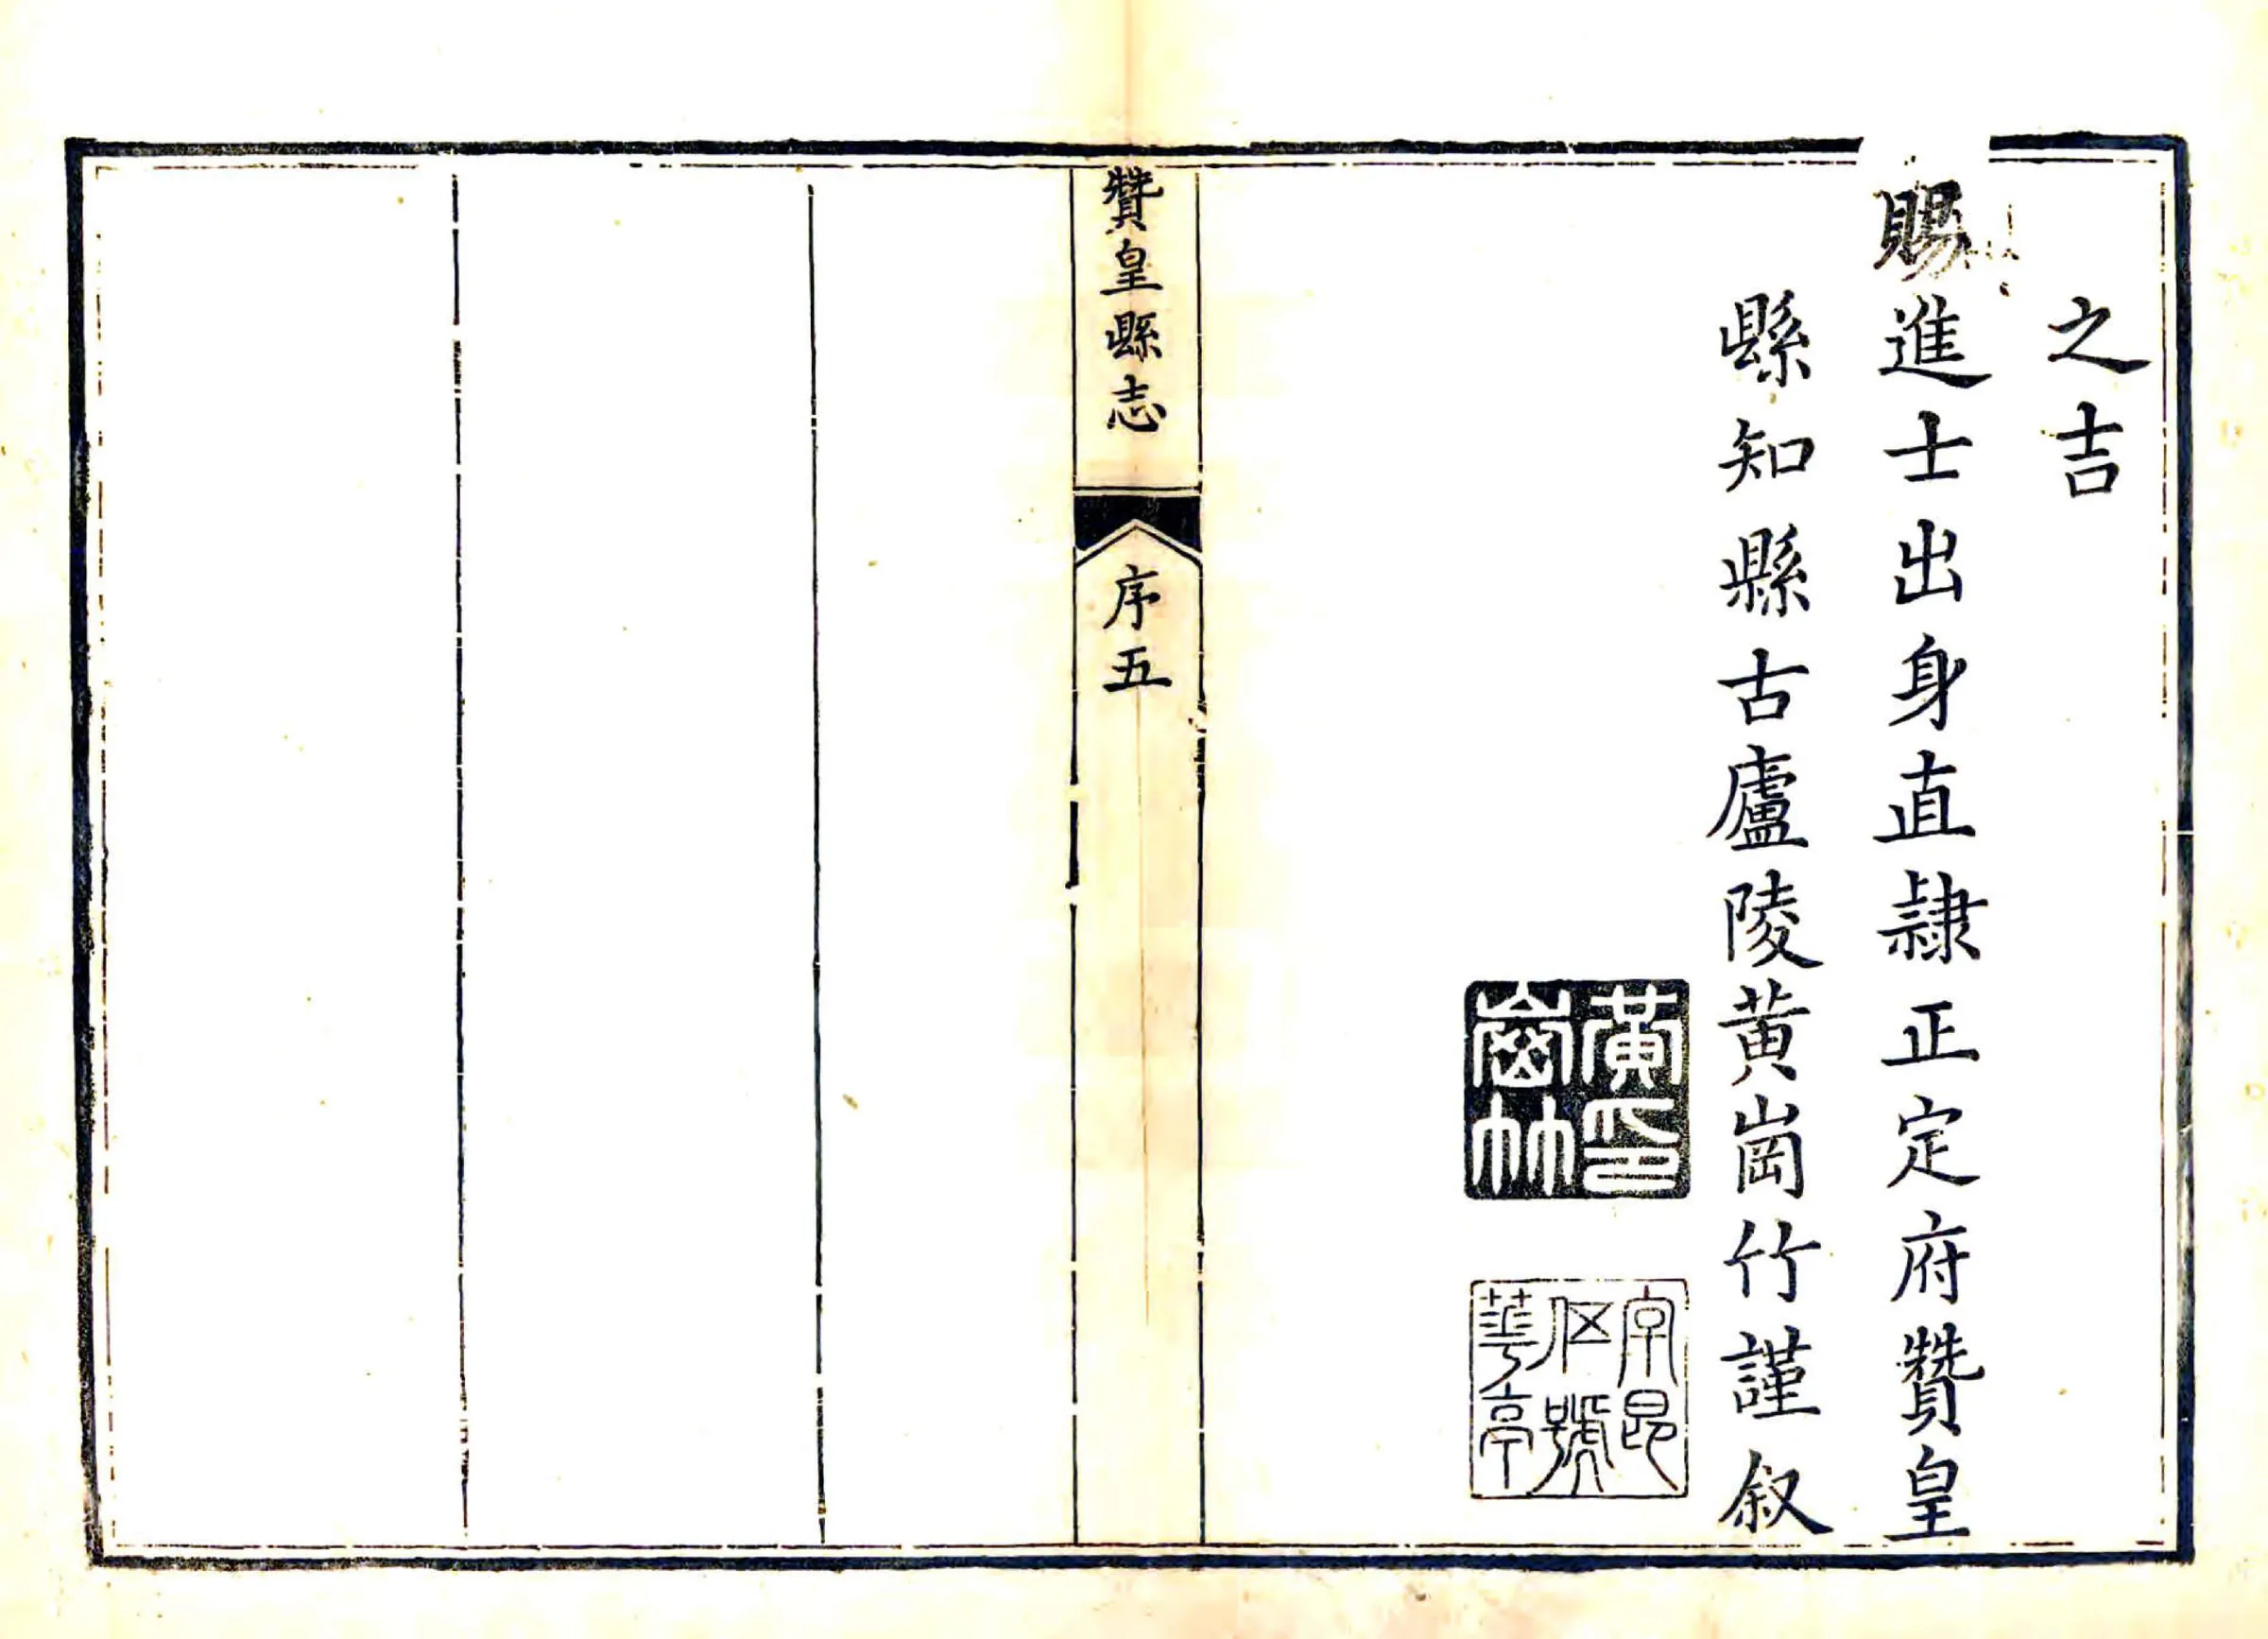 之吉
賜進士出身直隷正定府贊皇
縣知縣古廬陵黄崗竹謹叙
黄印
崗竹
字昆
伍號
華亭
贊皇縣志
序五